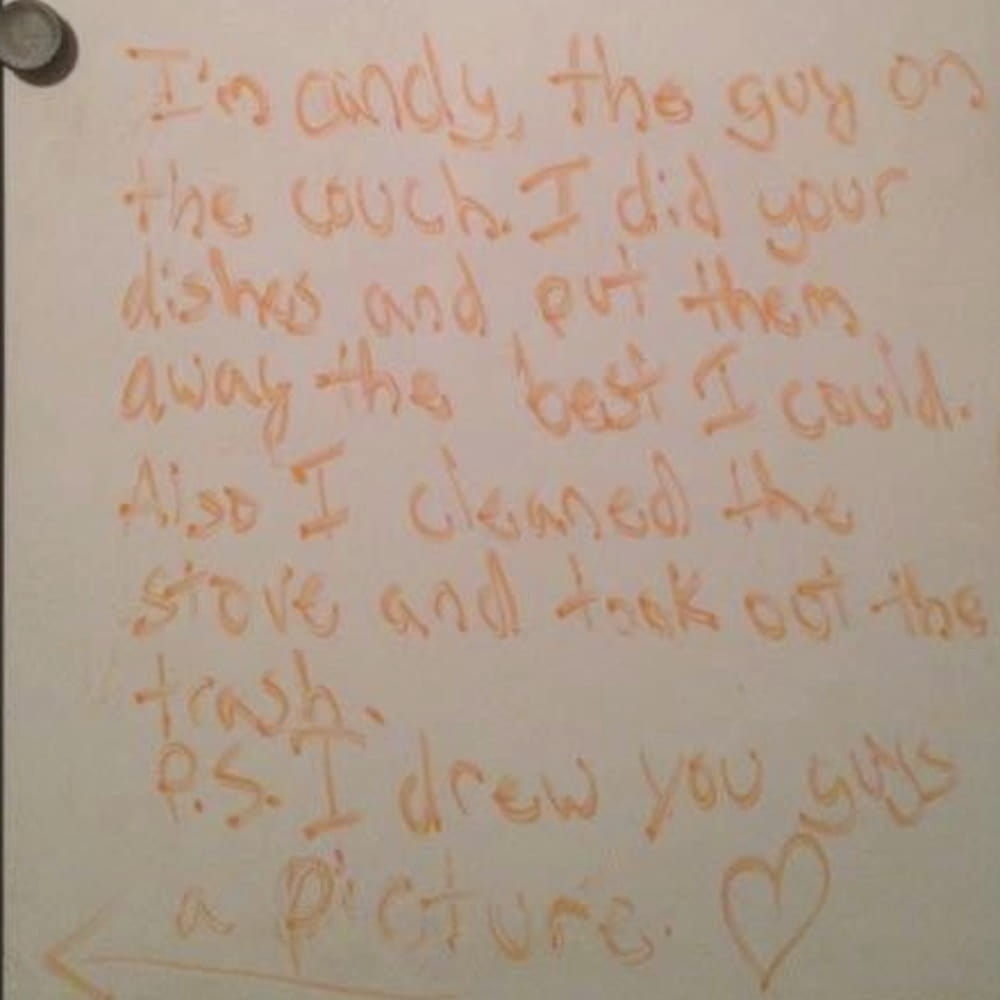 I'm andy, the guy on
the couch. I did your
dishes and put them
away the best I could.
Also I cleaned the
stove and took out the
trash.
P.S. I drew you guys
a picture. ♡